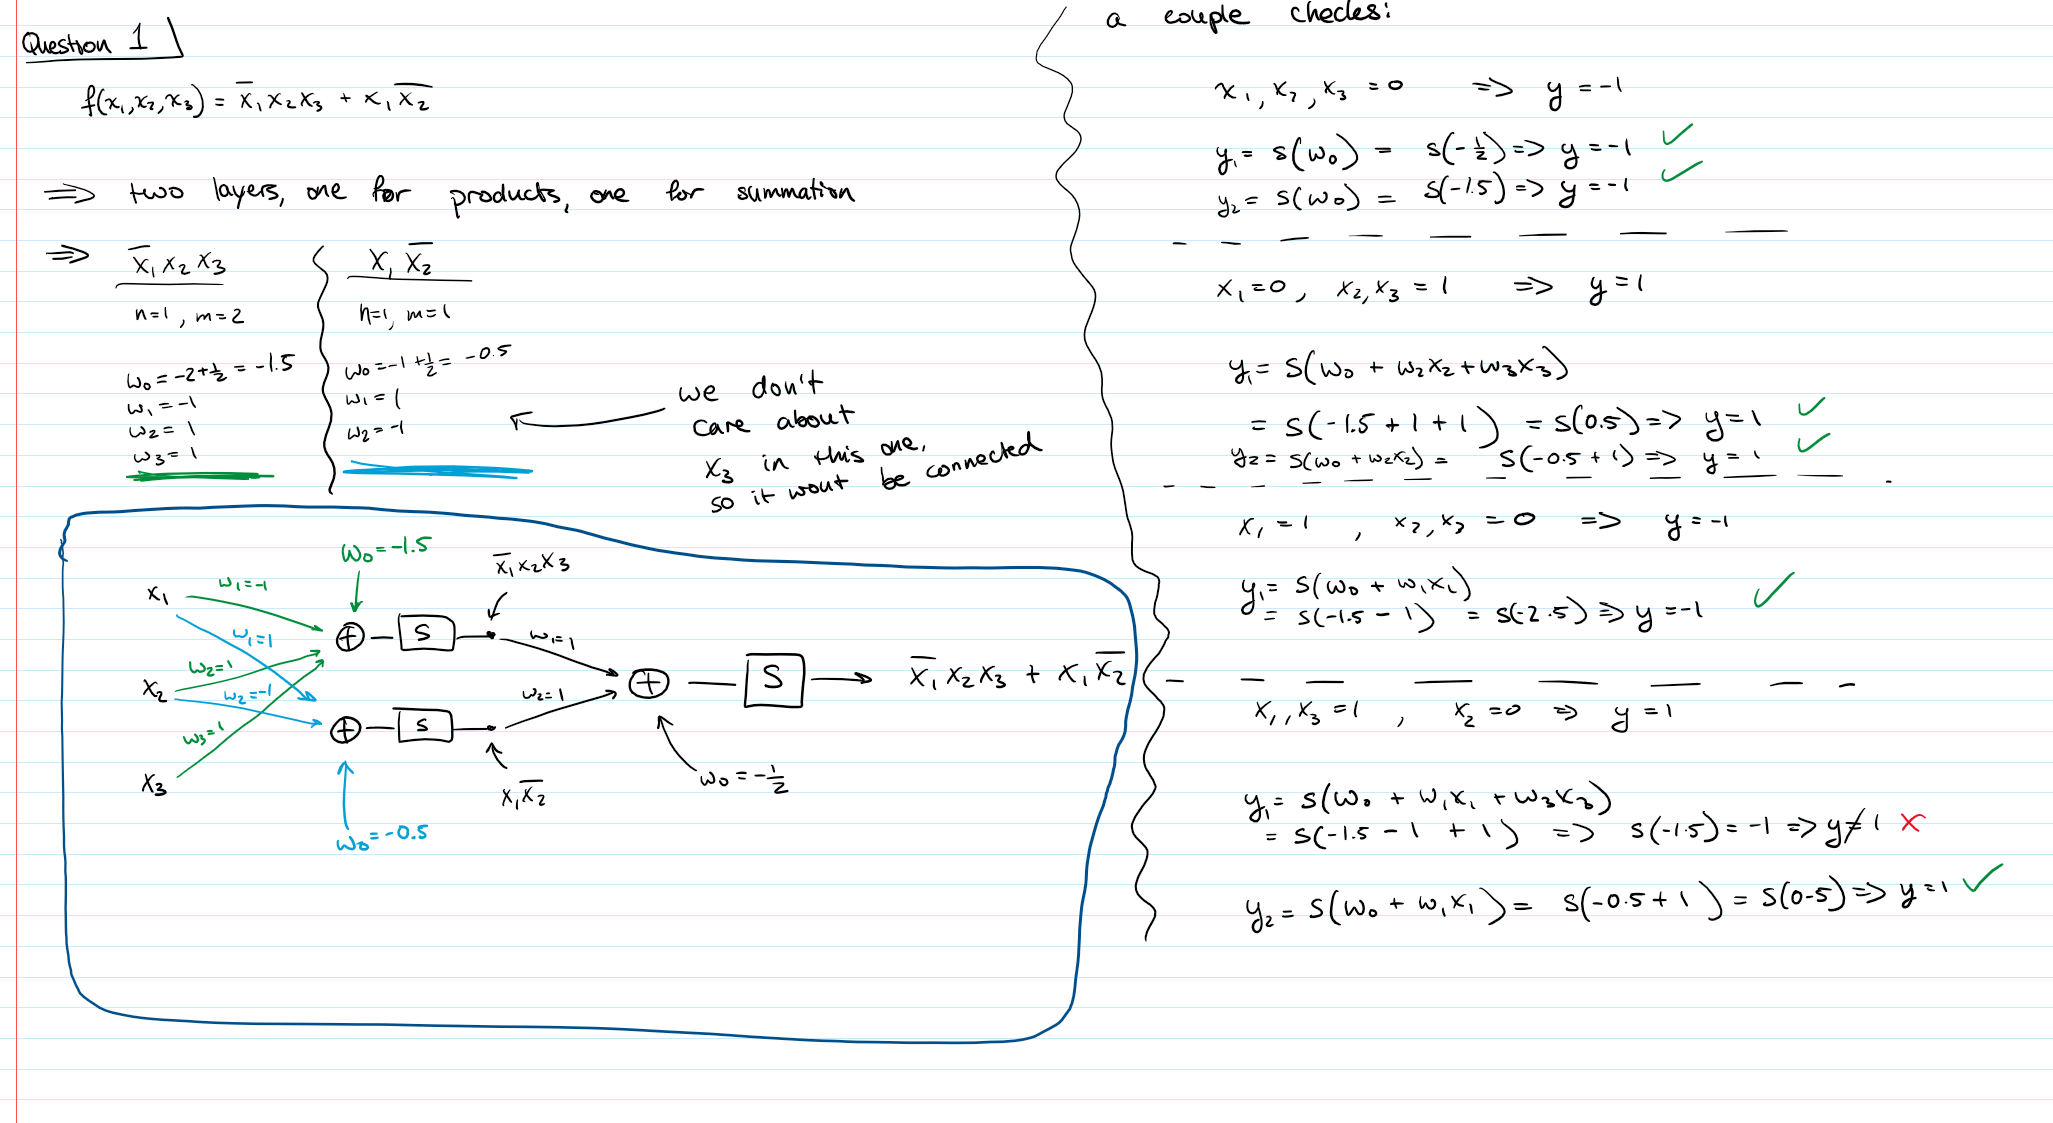 Question 1
f(x₁,x₂,x₃) = x̅₁x₂x₃ + x₁x̅₂
=> two layers, one for products, one for summation
=> x̅₁x₂x₃
n=1, m=2
w₀ = -2+½ = -1.5
w₁ = -1
w₂ = 1
w₃ = 1
x₁x̅₂
n=1, m=1
w₀ = -1+½ = -0.5
w₁ = 1
w₂ = -1
we don't
care about
x₃ in this one,
so it wont be connected
w₀ = -1.5
x̅₁x₂x₃
x₁
w₁=-1
w₁=1
S
w₁=1
w₂=1
x₂
w₂=-1
w₂=1
S
x̅₁x₂x₃ + x₁x̅₂
w₃=1
S
x₃
x₁x̅₂
w₀ = -½
w₀ = -0.5
a couple checks:
x₁, x₂, x₃ = 0 => y = -1
y₁ = s(w₀) = s(-½) => y = -1 ✓
y₂ = s(w₀) = s(-1.5) => y = -1 ✓
x₁=0, x₂,x₃ = 1 => y = 1
y₁ = s(w₀ + w₂x₂ + w₃x₃)
= s(-1.5 + 1 + 1) = s(0.5) => y = 1 ✓
y₂ = s(w₀ + w₂x₂) = s(-0.5 + 1) => y = 1 ✓
x₁ = 1, x₂,x₃ = 0 => y = -1
y₁ = s(w₀ + w₁x₁)
= s(-1.5 - 1) = s(-2.5) => y = -1 ✓
x₁,x₃ = 1, x₂ = 0 => y = 1
y₁ = s(w₀ + w₁x₁ + w₃x₃)
= s(-1.5 - 1 + 1) => s(-1.5) = -1 => y ≠ 1 ✗
y₂ = s(w₀ + w₁x₁) = s(-0.5 + 1) = s(0.5) => y = 1 ✓